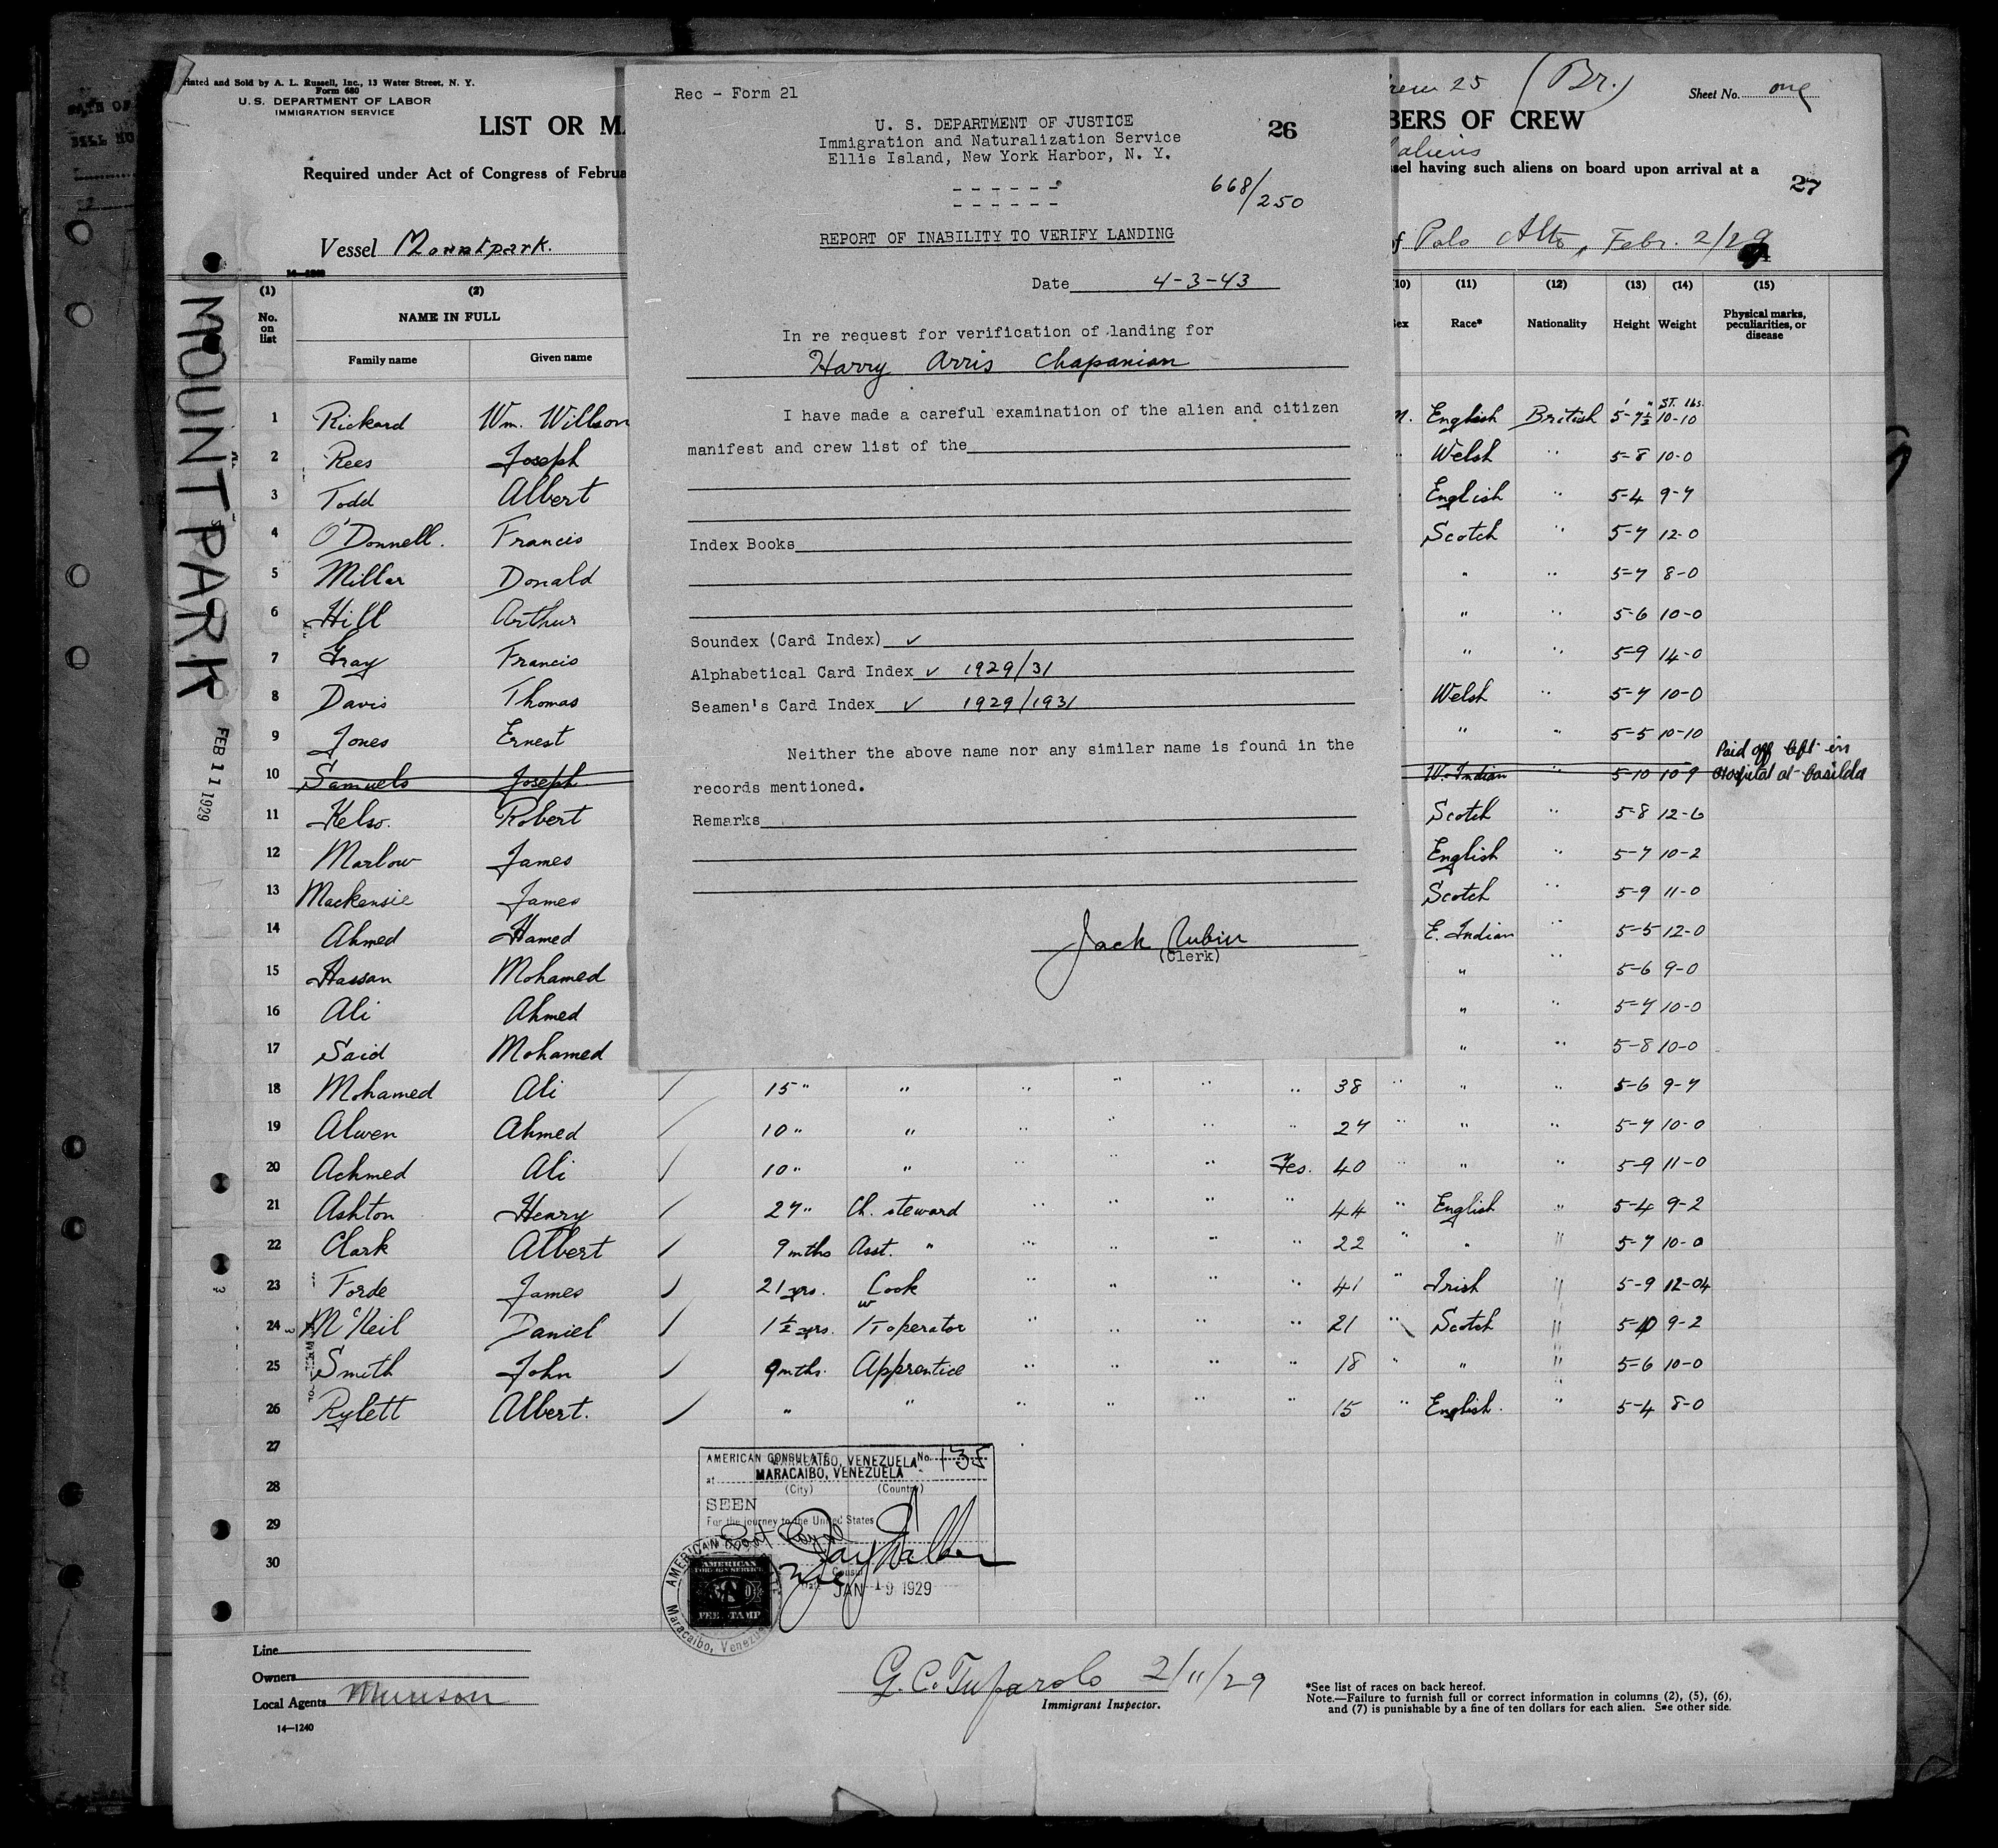 Printed and Sold by A. L. Russell, Inc., 13 Water Street, N. Y.
Form 680
U. S. DEPARTMENT OF LABOR
IMMIGRATION SERVICE
LIST OR MA
Required under Act of Congress of Februa
Vessel Mountpark.
crew 25 (Br.) Sheet No. one
BERS OF CREW
aliens
ssel having such aliens on board upon arrival at a
27
of Palo Alto, Febr. 2/29
MOUNTPARK
FEB 11 1929
Rec - Form 21
U. S. DEPARTMENT OF JUSTICE
Immigration and Naturalization Service
Ellis Island, New York Harbor, N. Y.
26
668/250
REPORT OF INABILITY TO VERIFY LANDING
Date 4-3-43
In re request for verification of landing for
Harry Arris Chapanian
I have made a careful examination of the alien and citizen
manifest and crew list of the
Index Books
Soundex (Card Index) ✓
Alphabetical Card Index ✓ 1929/31
Seamen's Card Index ✓ 1929/1931
Neither the above name nor any similar name is found in the
records mentioned.
Remarks
Jack Rubin
(Clerk)
(1) (2) (10) (11) (12) (13) (14) (15)
No. on list NAME IN FULL Sex Race* Nationality Height Weight Physical marks, peculiarities, or disease
Family name Given name
1 Rickard Wm. Willson M. English British 5-7½ 10-10
2 Rees Joseph Welsh " 5-8 10-0
3 Todd Albert English " 5-4 9-7
4 O'Donnell. Francis Scotch " 5-7 12-0
5 Millar Donald " " 5-7 8-0
6 Hill Arthur " " 5-6 10-0
7 Gray Francis " " 5-9 14-0
8 Davis Thomas Welsh " 5-7 10-0
9 Jones Ernest " " 5-5 10-10
10 Samuels Joseph W. Indian " 5-10 10-9 Paid off left in Hospital at Casilda
11 Kelso. Robert Scotch " 5-8 12-6
12 Marlow James English " 5-7 10-2
13 Mackensie James Scotch " 5-9 11-0
14 Ahmed Hamed E. Indian " 5-5 12-0
15 Hassan Mohamed " " 5-6 9-0
16 Ali Ahmed " " 5-7 10-0
17 Said Mohamed " " 5-8 10-0
18 Mohamed Ali ✓ 15 " " " " " " 38 " " " 5-6 9-7
19 Alwen Ahmed ✓ 10 " " " " " " 27 " " " 5-7 10-0
20 Achmed Ali ✓ 10 " " " " " Yes. 40 " " " 5-9 11-0
21 Ashton Henry ✓ 27 " Ch. steward " " " " 44 " English " 5-4 9-2
22 Clark Albert ✓ 9 mths Asst. " " " " " 22 " " " 5-7 10-0
23 Forde James ✓ 21 yrs. Cook " " " " 41 " Irish " 5-9 12-04
24 McNeil Daniel ✓ 1½ yrs. W/T operator " " " " 21 " Scotch " 5-10 9-2
25 Smith John ✓ 9 mths. Apprentice " " " " 18 " " " 5-6 10-0
26 Rylett Albert. ✓ " " " " " " 15 " English. " 5-4 8-0
27
28
29
30
AMERICAN CONSULATE No. 135
at MARACAIBO, VENEZUELA
(City) (Country)
SEEN
For the journey to the United States
Consul
Date JAN 19 1929
AMERICAN FOREIGN SERVICE
FEE STAMP
Maracaibo, Venezuela
Line
Owners
Local Agents Munson
14—1240
G. C. Tuparolo 2/11/29
Immigrant Inspector.
*See list of races on back hereof.
Note.—Failure to furnish full or correct information in columns (2), (5), (6),
and (7) is punishable by a fine of ten dollars for each alien. See other side.